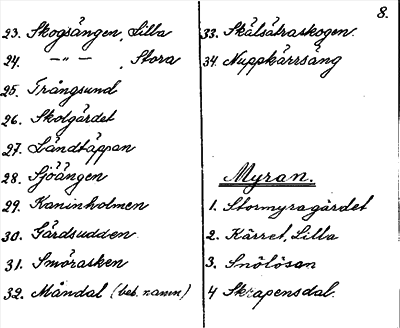 8.
23. Skogsängen, Lilla
24. —"— , Stora
25. Trångsund
26. Skolgärdet
27. Ländtäppan
28. Sjöängen
29. Kaninholmen
30. Gårdsudden
31. Smörasken
32. Måndal (beb. namn)
33. Skälsätraskogen.
34. Nuppkärrsäng
Myran.
1. Stormyragärdet
2. Kärret, Lilla
3. Snölösan
4 Skrapensdal.